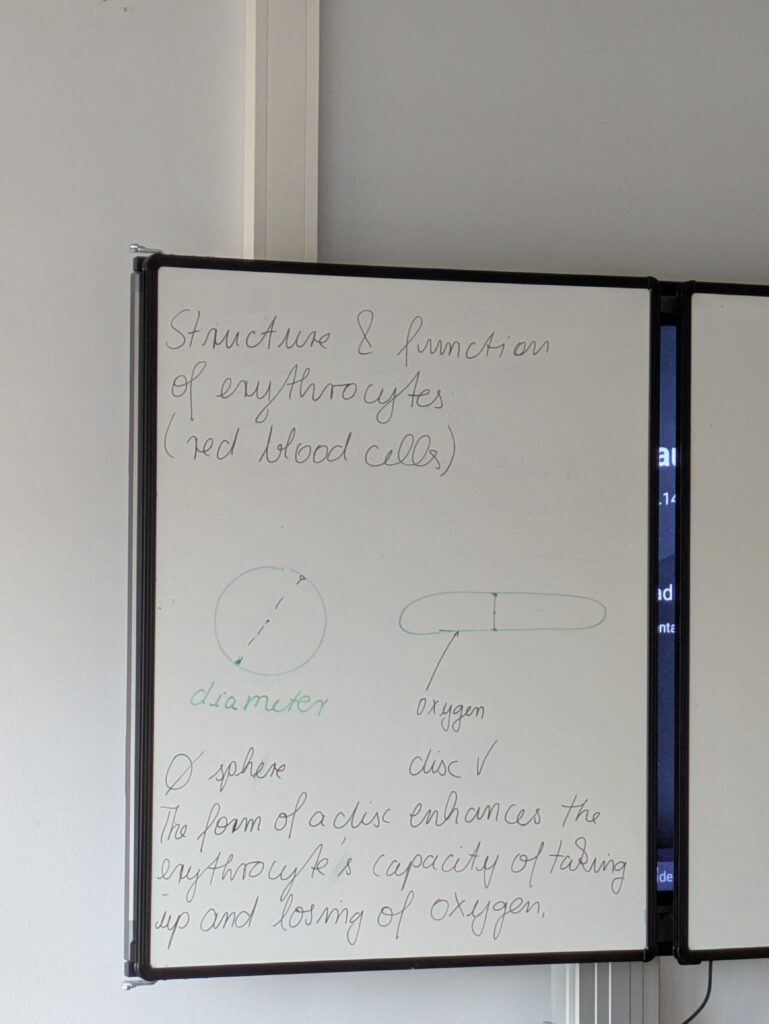 Structure & function
of erythrocytes
(red blood cells)
diameter
oxygen
Ø sphere
disc ✓
The form of a disc enhances the
erythrocyte's capacity of taking
up and losing of oxygen.